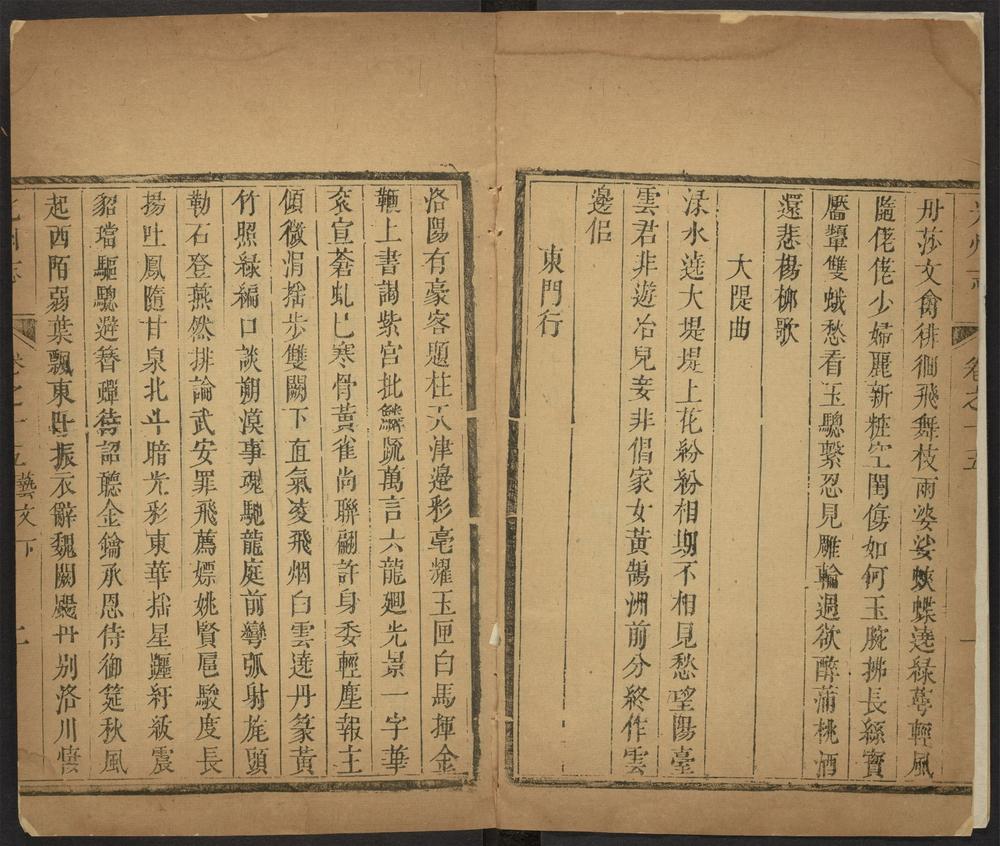 光州志
卷之十五
一
丹莎文禽徘徊飛舞枝雨婆娑蛺蝶遶綠蕚輕風
隨佬佬少婦麗新粧空閨傷如何玉腕拂長絲寳
靨顰雙蛾愁看玉驄繫忍見雕輪過欲醉蒲桃酒
還悲楊柳歌
大隄曲
渌水遶大堤堤上花紛紛相期不相見愁望陽臺
雲君非遊冶兒妾非倡家女黃鵠洲前分終作雲
邊侶
東門行
洛陽有豪客題柱天津邉彩毫耀玉匣白馬揮金
鞭上書謁紫宮批鱗䟽萬言六龍廻光景一字華
衮宣蒼虬巳寒骨黃雀尚聯翩許身委輕塵報主
傾微涓搖步雙闕下直氣凌飛烟白雲遶丹篆黃
竹照緑編口談朔漠事魂馳龍庭前彎弧射旄頭
勒石登燕然排論武安罪飛薦嫖姚賢扈駿度長
揚吐鳳隨甘泉北斗暗光彩東華搖星躔紆紱震
貂璫驅驄避簪蟬待詔聽金鑰承恩侍御筵秋風
起西陌弱葉飄東阡振衣辭魏闕颺丹别洛川
光州志
卷之十五藝文下
二